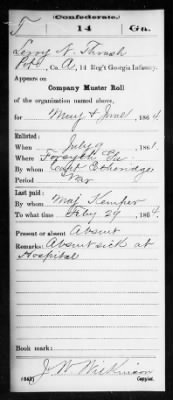 T (Confederate.)
14 Ga.
Leroy N. Thrash
Pvt, Co. A, 14 Reg't Georgia Infantry.
Appears on
Company Muster Roll
of the organization named above,
for May & June, 1864
Enlisted:
When July 9, 1861.
Where Forsyth Ga
By whom Capt Etheridge
Period War
Last paid:
By whom Maj Kemper
To what time Feby 29, 1864.
Present or absent Absent
Remarks: Absent sick at
Hospital
Book mark:
J. W. Wilkinson
Copyist.